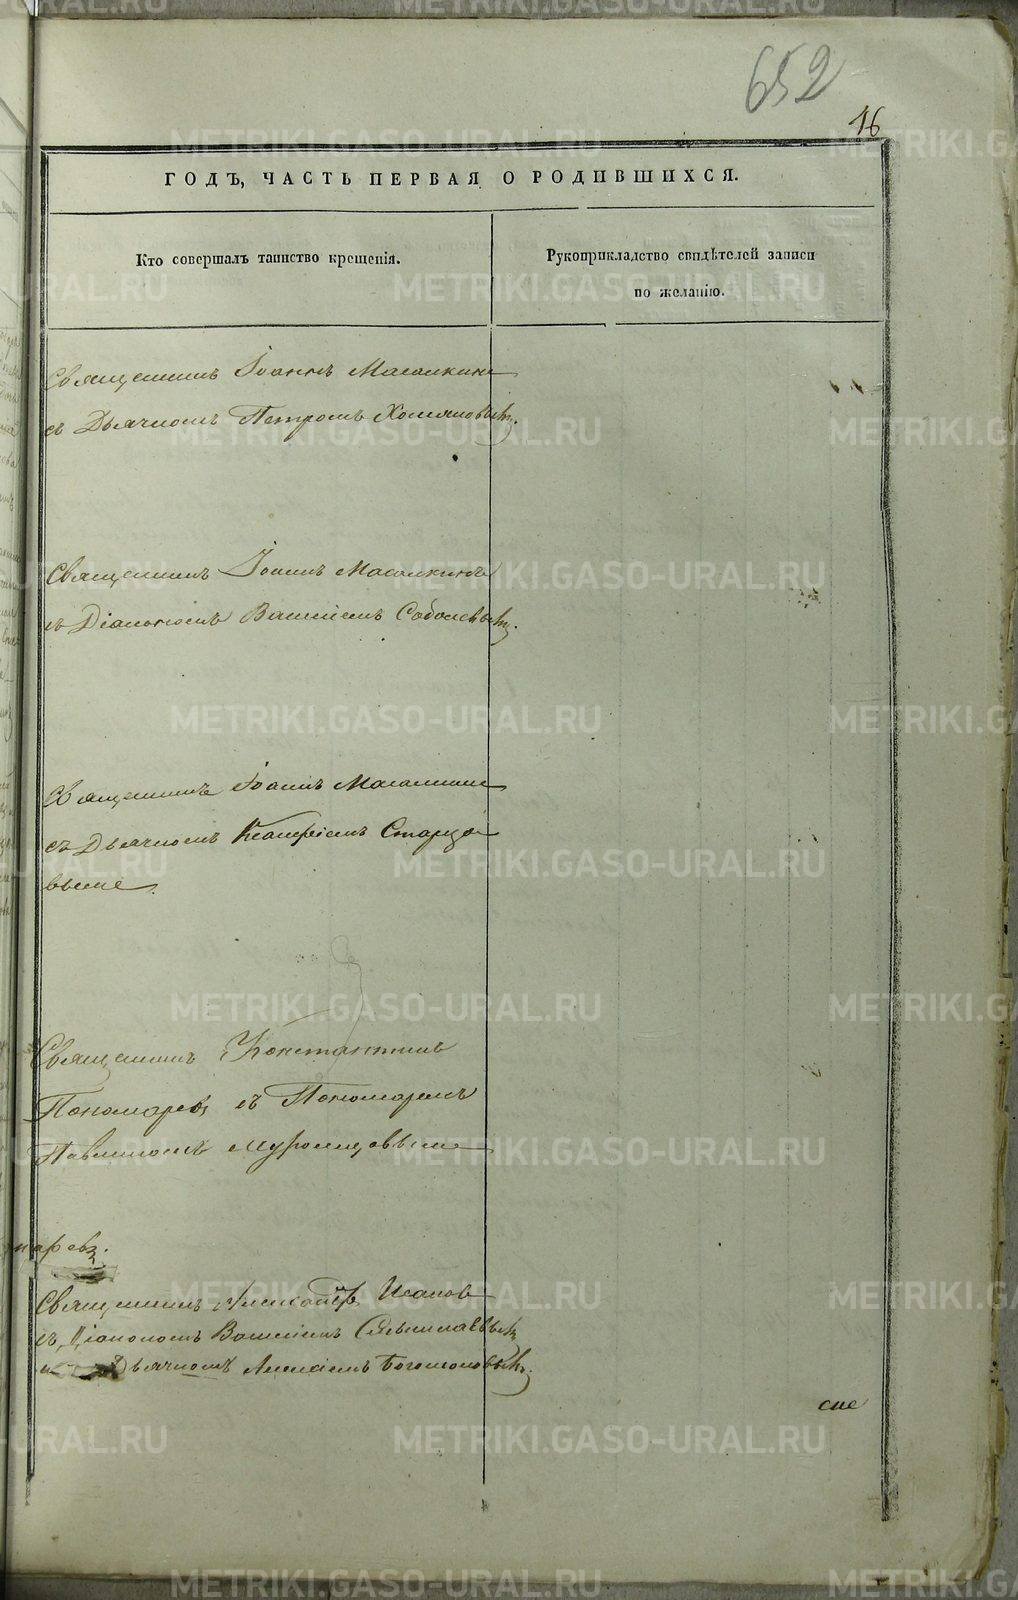 652
16
ГОДЪ, ЧАСТЬ ПЕРВАЯ О РОДИВШИХСЯ.
Кто совершалъ таинство крещенія.
Рукоприкладство свидѣтелей записи
по желанію.
Священникъ Іоаннъ Масалкинъ
съ Дьячкомъ Петромъ Хомяковымъ.
Священникъ Іоаннъ Масалкинъ
съ Діакономъ Василіемъ Соболевымъ.
Священникъ Іоаннъ Масалкинъ
съ Дьячкомъ Старцо
вымъ.
Священникъ Константинъ
Пономаревъ съ Пономаремъ
Павлиномъ Муромцовымъ
Священникъ Александръ
съ Діакономъ Василіемъ
Дьячкомъ Алексіемъ Богомоловымъ.
сие
METRIKI.GASO-URAL.RU